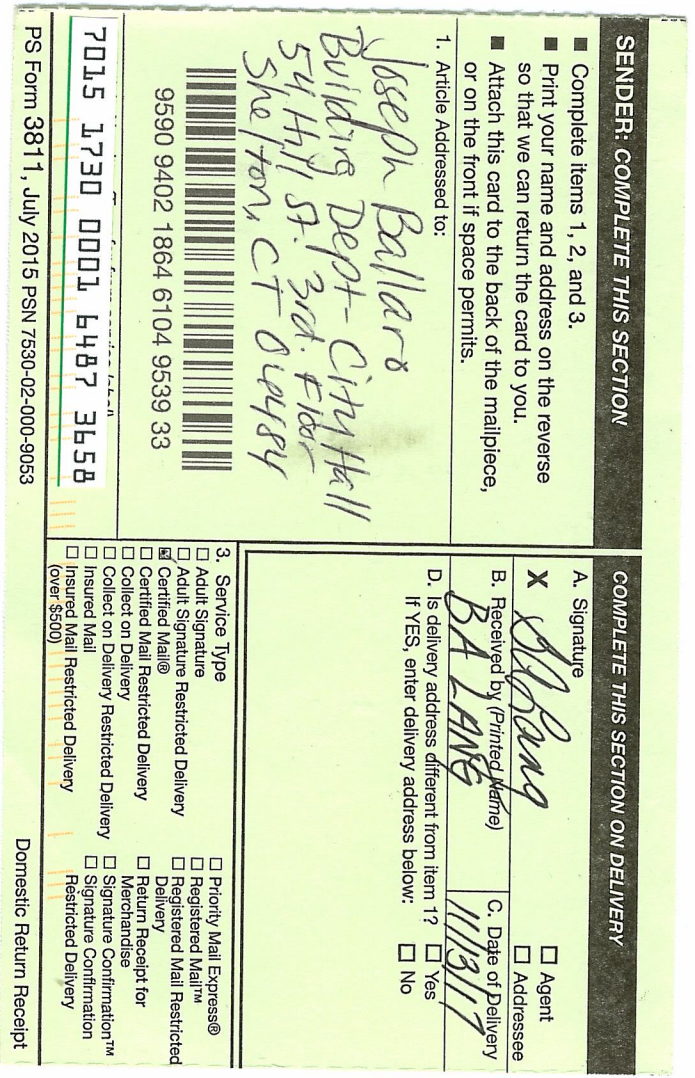 SENDER: COMPLETE THIS SECTION
■ Complete items 1, 2, and 3.
■ Print your name and address on the reverse
so that we can return the card to you.
■ Attach this card to the back of the mailpiece,
or on the front if space permits.
1. Article Addressed to:
Joseph Ballaro
Building Dept - City Hall
54 Hill St. 3rd. Floor
Shelton, CT 06484
9590 9402 1864 6104 9539 33
7015 1730 0001 6487 3658
PS Form 3811, July 2015 PSN 7530-02-000-9053
COMPLETE THIS SECTION ON DELIVERY
A. Signature
X BALang
☐ Agent
☐ Addressee
B. Received by (Printed Name)
BA LANG
C. Date of Delivery
11/13/17
D. Is delivery address different from item 1? ☐ Yes
If YES, enter delivery address below: ☐ No
3. Service Type
☐ Adult Signature
☐ Adult Signature Restricted Delivery
☑ Certified Mail®
☐ Certified Mail Restricted Delivery
☐ Collect on Delivery
☐ Collect on Delivery Restricted Delivery
☐ Insured Mail
☐ Insured Mail Restricted Delivery
(over $500)
☐ Priority Mail Express®
☐ Registered Mail™
☐ Registered Mail Restricted
Delivery
☐ Return Receipt for
Merchandise
☐ Signature Confirmation™
☐ Signature Confirmation
Restricted Delivery
Domestic Return Receipt